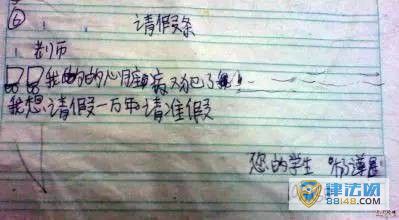 ⑥ 请假条
老师
我的的心脏病又犯了
我想请假一万年请准假
您的学生
律法网
88148.com